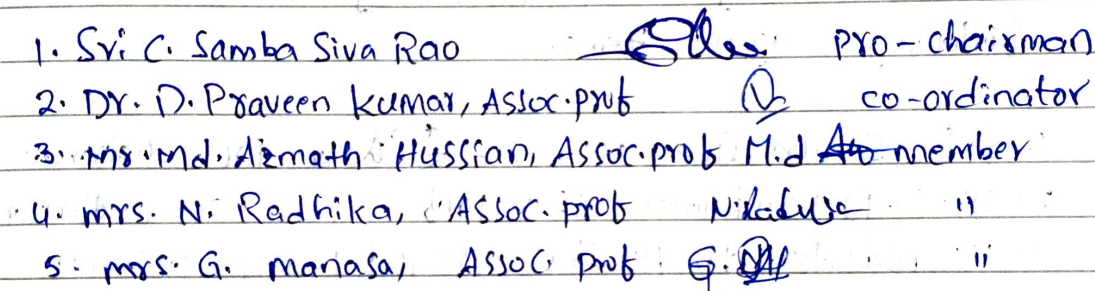 1. Sri C. Samba Siva Rao pro-chairman
2. Dr. D. Praveen kumar, Assoc. prof co-ordinator
3. Mr. Md. Azmath Hussian, Assoc. prof M.d member
4. mrs. N. Radhika, Assoc. prof "
5. mrs. G. manasa, Assoc. prof G. "